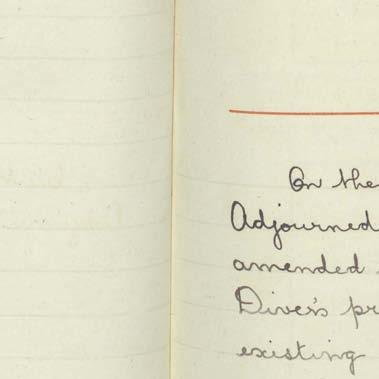 On the
Adjourned
amended
Diver's pr
existing